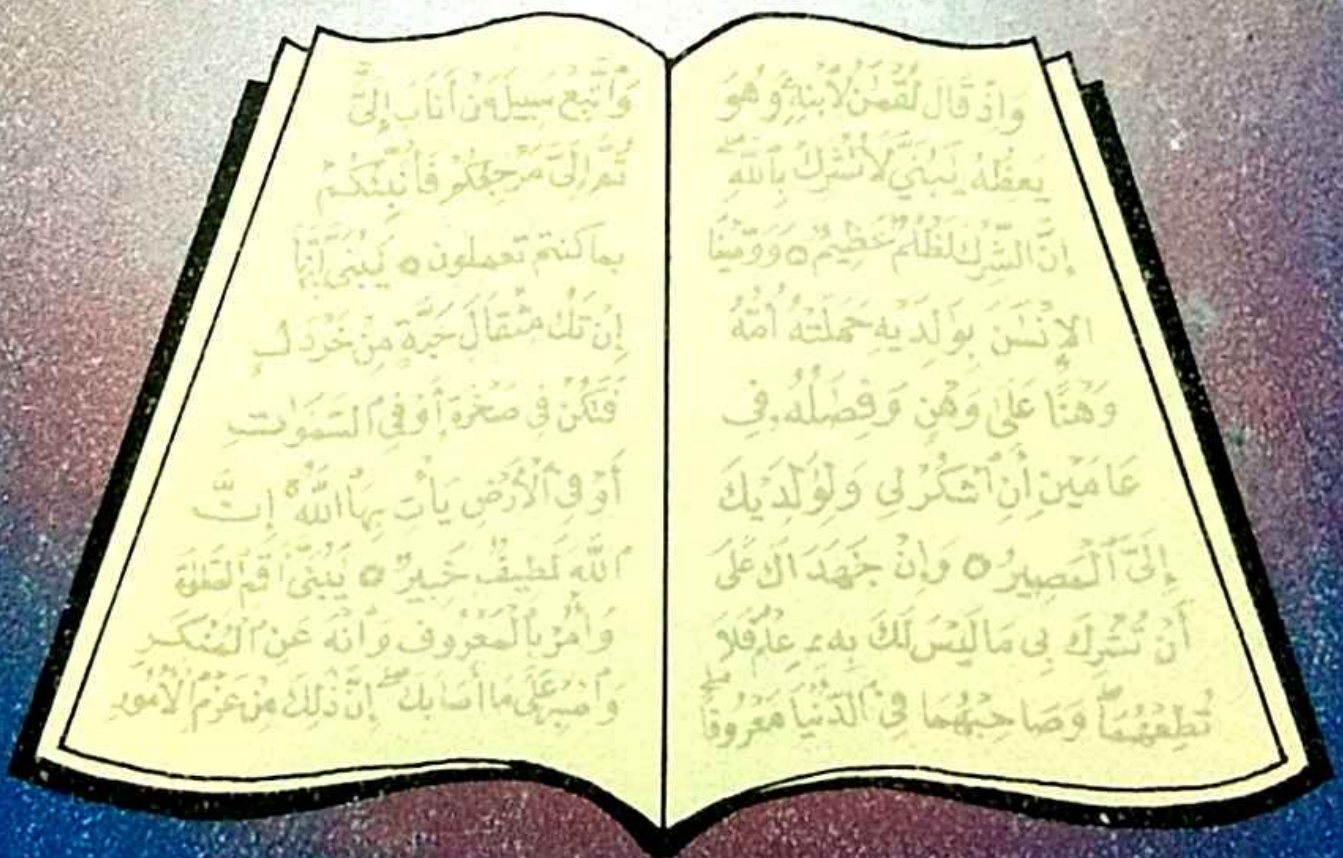 وَإِذْ قَالَ لُقْمَٰنُ لِٱبْنِهِۦ وَهُوَ
يَعِظُهُۥ يَٰبُنَيَّ لَا تُشْرِكْ بِٱللَّهِۖ
إِنَّ ٱلشِّرْكَ لَظُلْمٌ عَظِيمٌ ۝ وَوَصَّيْنَا
ٱلْإِنْسَٰنَ بِوَٰلِدَيْهِ حَمَلَتْهُ أُمُّهُ
وَهْنًا عَلَىٰ وَهْنٍ وَفِصَٰلُهُۥ فِي
عَامَيْنِ أَنِ ٱشْكُرْ لِي وَلِوَٰلِدَيْكَ
إِلَيَّ ٱلْمَصِيرُ ۝ وَإِنْ جَٰهَدَاكَ عَلَىٰ
أَنْ تُشْرِكَ بِي مَا لَيْسَ لَكَ بِهِۦ عِلْمٌ فَلَا
تُطِعْهُمَاۖ وَصَاحِبْهُمَا فِي ٱلدُّنْيَا مَعْرُوفًاۖ
وَٱتَّبِعْ سَبِيلَ مَنْ أَنَابَ إِلَيَّ
ثُمَّ إِلَيَّ مَرْجِعُكُمْ فَأُنَبِّئُكُمْ
بِمَا كُنْتُمْ تَعْمَلُونَ ۝ يَٰبُنَيَّ إِنَّهَا
إِنْ تَكُ مِثْقَالَ حَبَّةٍ مِنْ خَرْدَلٍ
فَتَكُنْ فِي صَخْرَةٍ أَوْ فِي ٱلسَّمَٰوَٰتِ
أَوْ فِي ٱلْأَرْضِ يَأْتِ بِهَا ٱللَّهُۚ إِنَّ
ٱللَّهَ لَطِيفٌ خَبِيرٌ ۝ يَٰبُنَيَّ أَقِمِ ٱلصَّلَوٰةَ
وَأْمُرْ بِٱلْمَعْرُوفِ وَٱنْهَ عَنِ ٱلْمُنْكَرِ
وَٱصْبِرْ عَلَىٰ مَا أَصَابَكَۖ إِنَّ ذَٰلِكَ مِنْ عَزْمِ ٱلْأُمُورِ